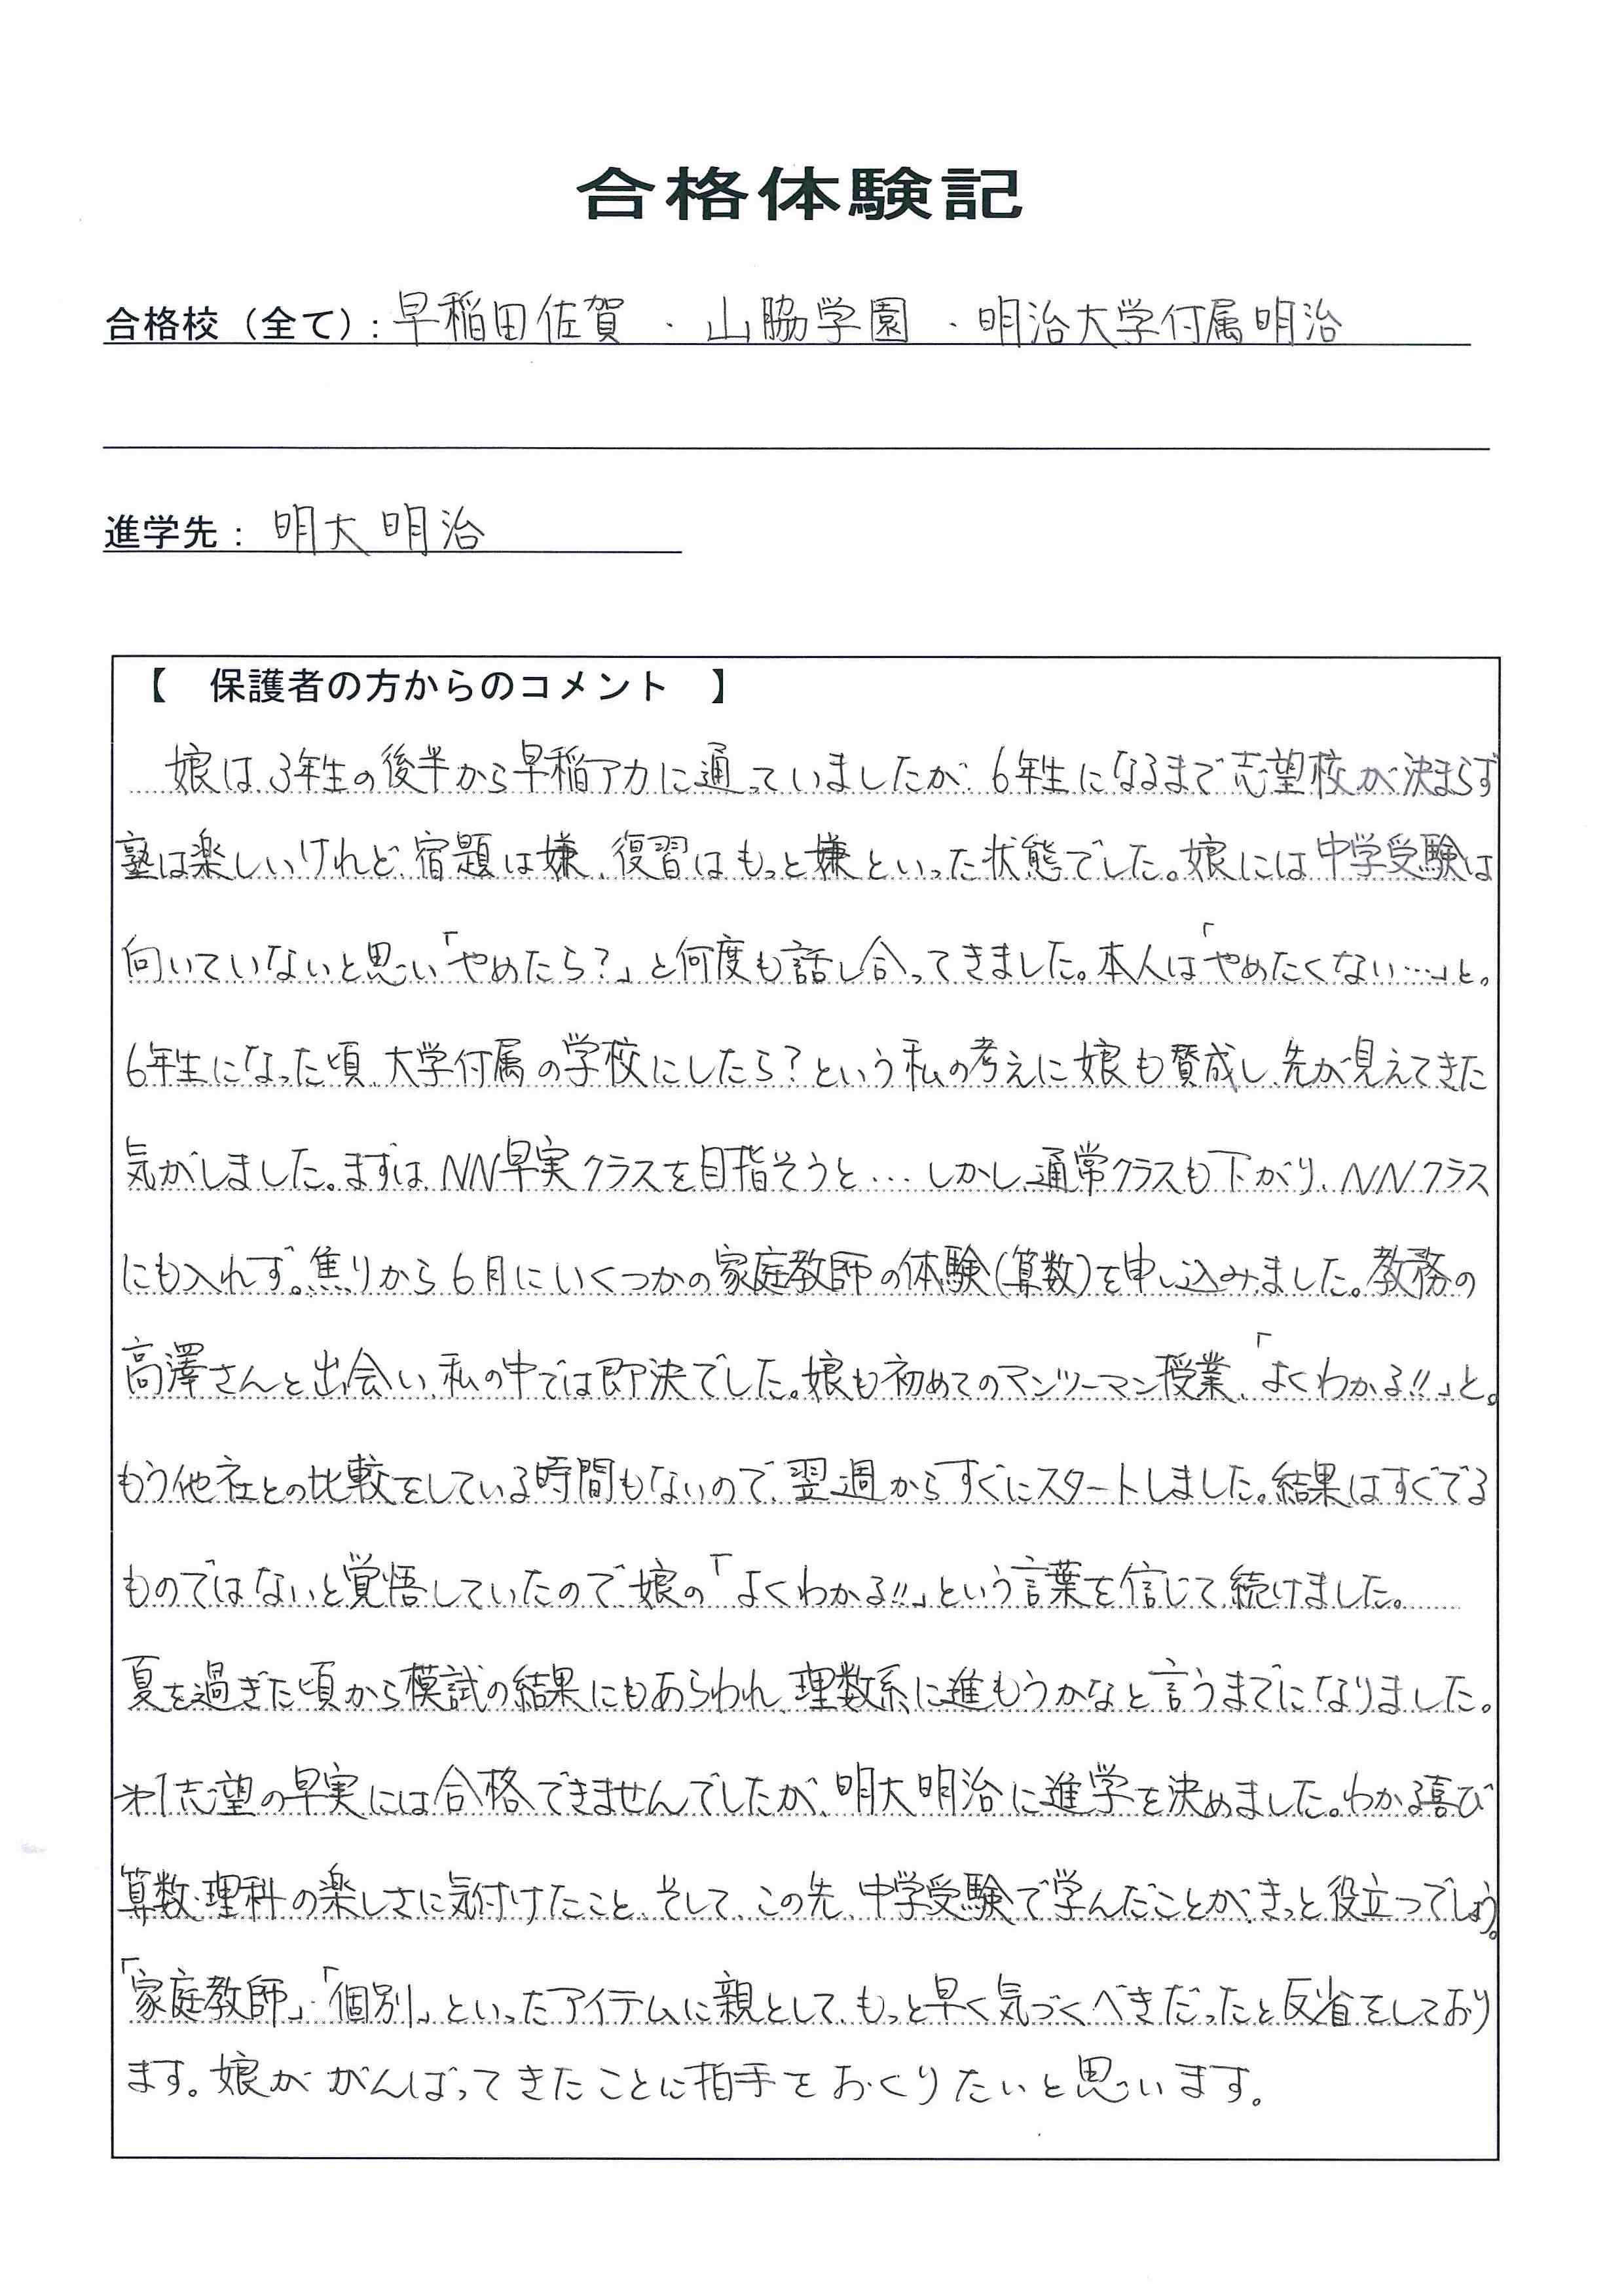 合格体験記
合格校（全て）：早稲田佐賀 ・ 山脇学園 ・ 明治大学付属明治
進学先： 明大明治
【　保護者の方からのコメント　】
娘は、3年生の後半から早稲アカに通っていましたが、6年生になるまで志望校が決まらず
塾は楽しいけれど、宿題は嫌、復習はもっと嫌といった状態でした。娘には中学受験は
向いていないと思い「やめたら？」と何度も話し合ってきました。本人は「やめたくない…」と。
6年生になった頃、大学付属の学校にしたら？という私の考えに娘も賛成し、先が見えてきた
気がしました。まずは、NN早実クラスを目指そうと…しかし、通常クラスも下がり、NNクラス
にも入れず。焦りから6月にいくつかの家庭教師の体験(算数)を申し込みました。教務の
高澤さんと出会い、私の中では即決でした。娘も初めてのマンツーマン授業、「よくわかる!!」と。
もう他社との比較をしている時間もないので、翌週からすぐにスタートしました。結果はすぐでる
ものではないと覚悟していたので、娘の「よくわかる!!」という言葉を信じて続けました。
夏を過ぎた頃から模試の結果にもあらわれ、理数系に進もうかなと言うまでになりました。
第1志望の早実には合格できませんでしたが、明大明治に進学を決めました。わかる喜び
算数・理科の楽しさに気付けたこと、そして、この先、中学受験で学んだことが、きっと役立つでしょう。
「家庭教師」・「個別」といったアイテムに親として、もっと早く気づくべきだったと反省をしており
ます。娘ががんばってきたことに拍手をおくりたいと思います。